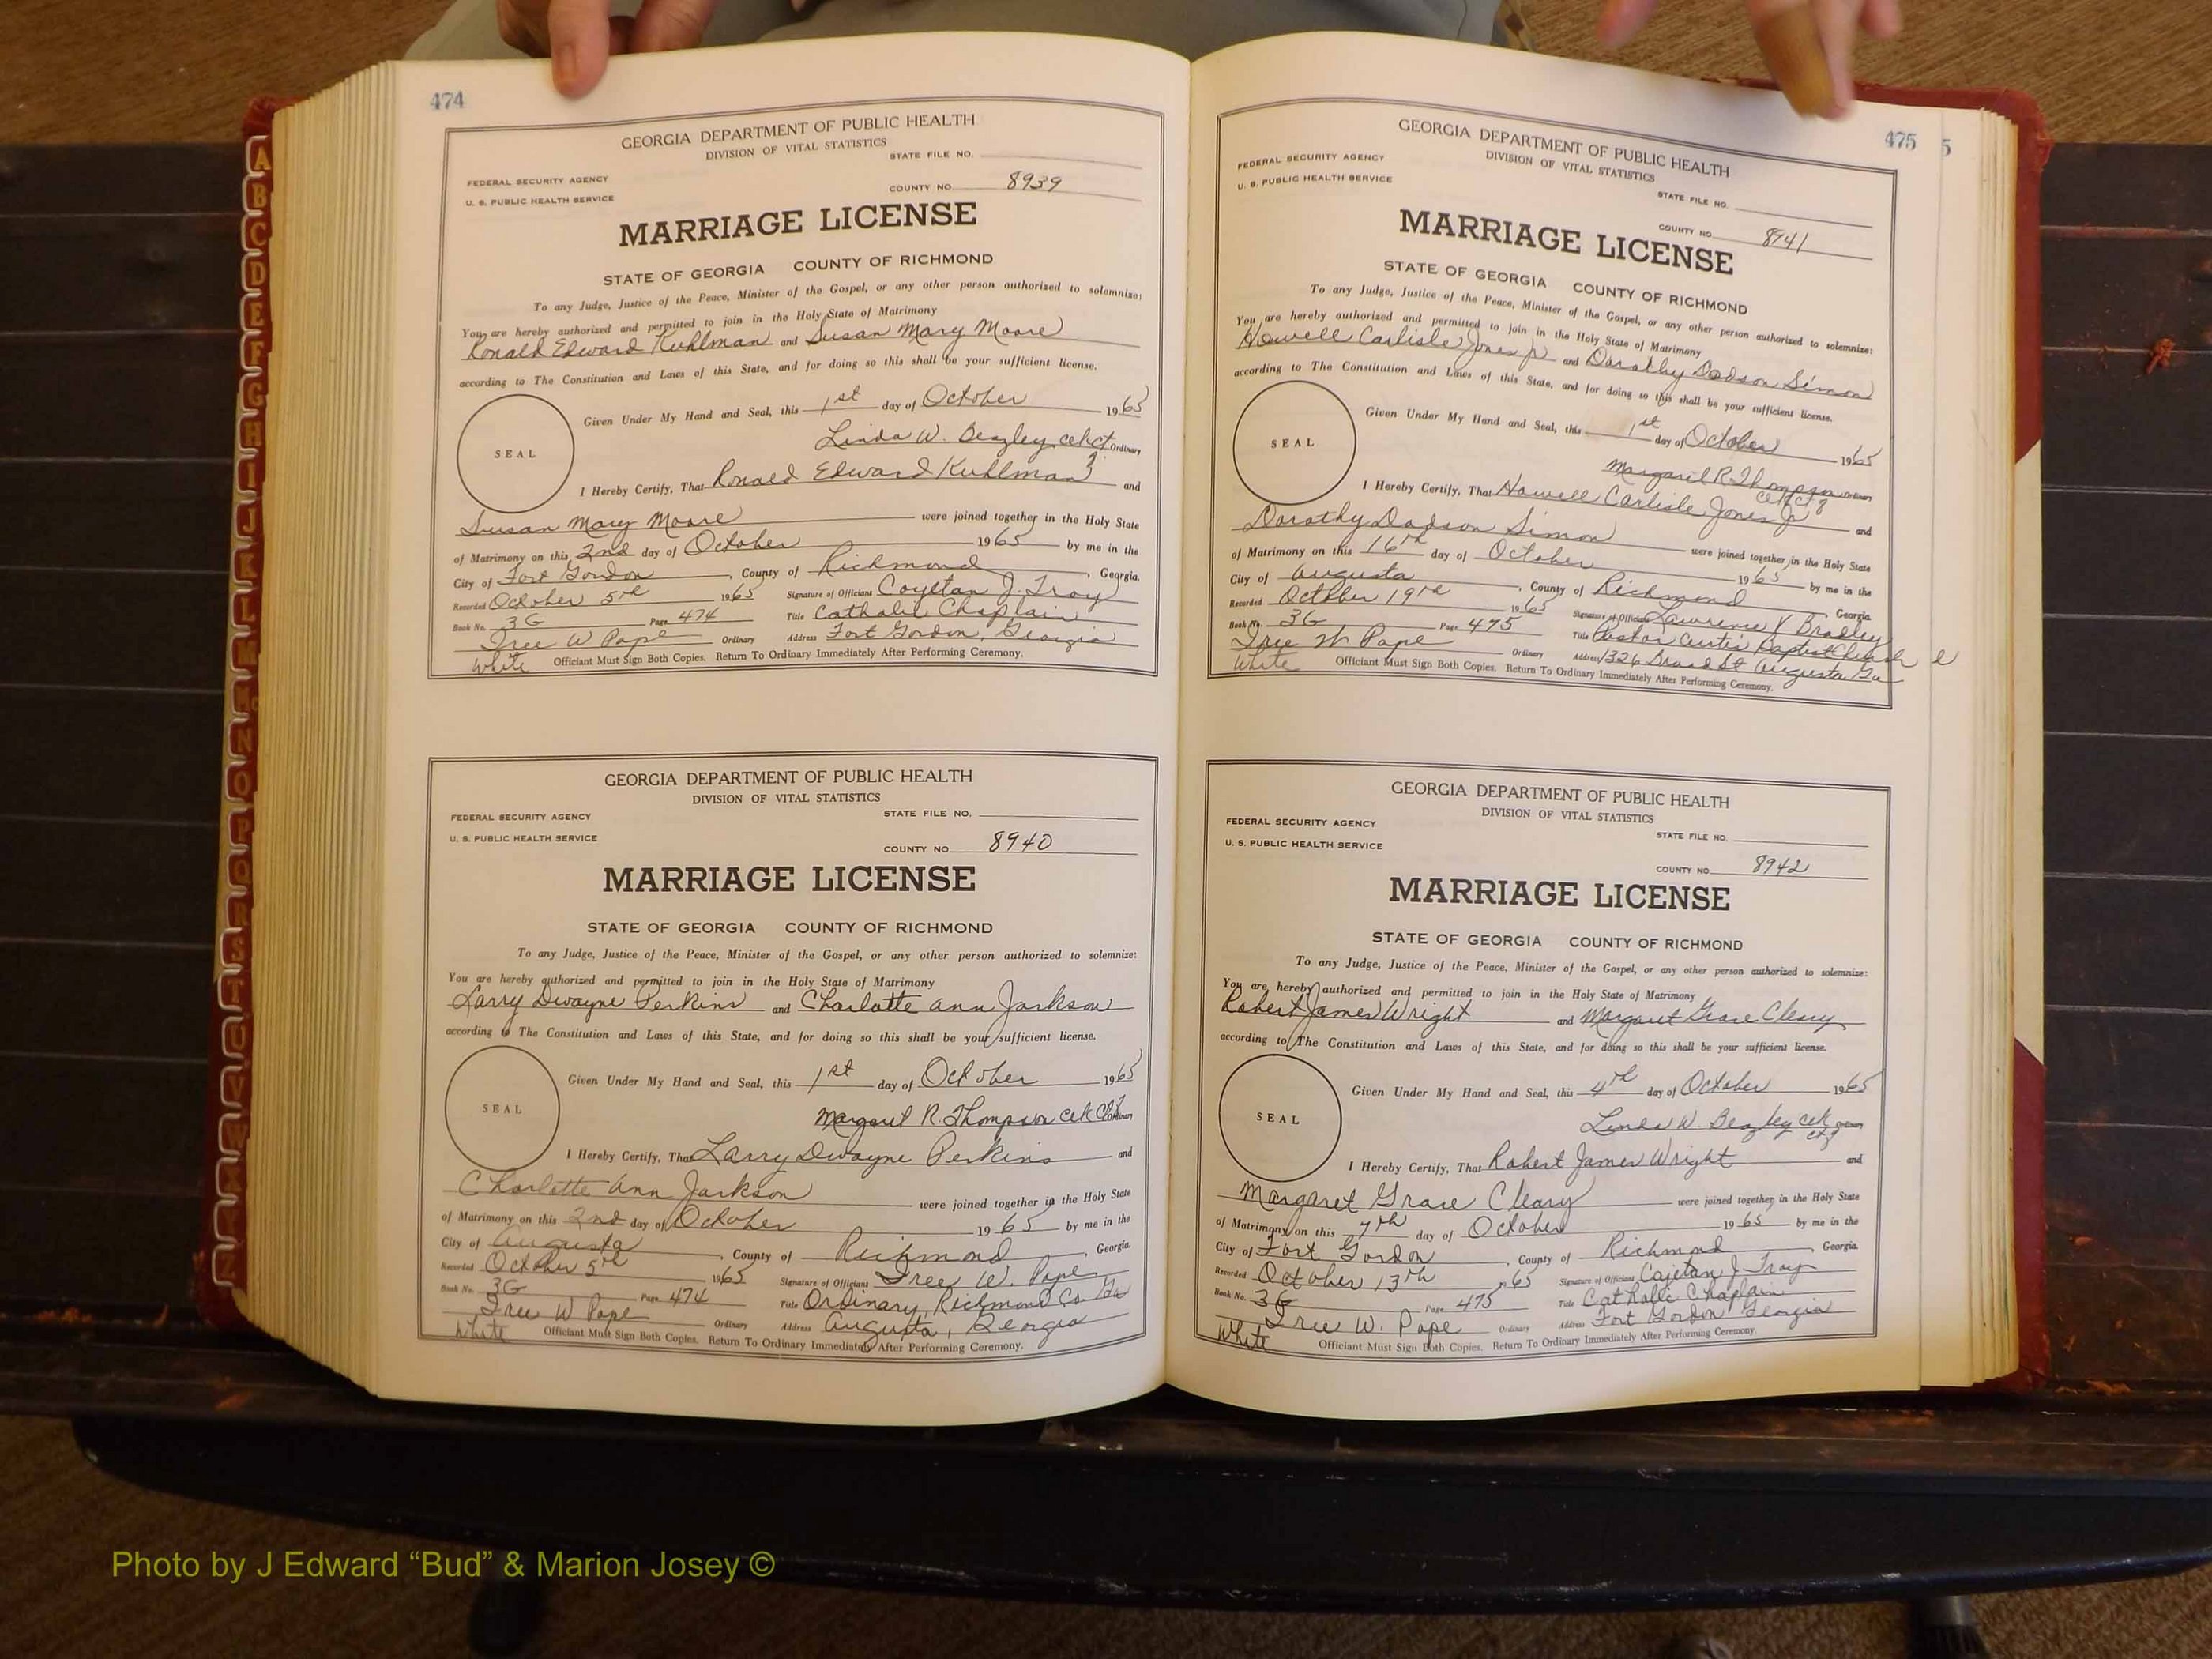 474
GEORGIA DEPARTMENT OF PUBLIC HEALTH
DIVISION OF VITAL STATISTICS
STATE FILE NO.
FEDERAL SECURITY AGENCY
U. S. PUBLIC HEALTH SERVICE
COUNTY NO. 8939
MARRIAGE LICENSE
STATE OF GEORGIA COUNTY OF RICHMOND
To any Judge, Justice of the Peace, Minister of the Gospel, or any other person authorized to solemnize:
You are hereby authorized and permitted to join in the Holy State of Matrimony
Ronald Edward Kuhlman and Susan Mary Moore
according to The Constitution and Laws of this State, and for doing so this shall be your sufficient license.
SEAL
Given Under My Hand and Seal, this 1st day of October 1965
Linda W. Beazley clk ct Ordinary
I Hereby Certify, That Ronald Edward Kuhlman and
Susan Mary Moore were joined together in the Holy State
of Matrimony on this 2nd day of October 1965 by me in the
City of Fort Gordon, County of Richmond, Georgia.
Recorded October 5th 1965 Signature of Officiant Cajetan J. Troy
Book No. 3G Page 474 Title Catholic Chaplain
Tree W Pope Ordinary Address Fort Gordon, Georgia
White Officiant Must Sign Both Copies. Return To Ordinary Immediately After Performing Ceremony.
GEORGIA DEPARTMENT OF PUBLIC HEALTH
DIVISION OF VITAL STATISTICS
STATE FILE NO.
FEDERAL SECURITY AGENCY
U. S. PUBLIC HEALTH SERVICE
COUNTY NO. 8940
MARRIAGE LICENSE
STATE OF GEORGIA COUNTY OF RICHMOND
To any Judge, Justice of the Peace, Minister of the Gospel, or any other person authorized to solemnize:
You are hereby authorized and permitted to join in the Holy State of Matrimony
Larry Dwayne Perkins and Charlotte Ann Jackson
according to The Constitution and Laws of this State, and for doing so this shall be your sufficient license.
SEAL
Given Under My Hand and Seal, this 1st day of October 1965
Margaret R. Thompson clk Ordinary
I Hereby Certify, That Larry Dwayne Perkins and
Charlotte Ann Jackson were joined together in the Holy State
of Matrimony on this 2nd day of October 1965 by me in the
City of Augusta, County of Richmond, Georgia
Recorded October 5th 1965 Signature of Officiant Tree W. Pope
Book No. 3G Page 474 Title Ordinary, Richmond Co. Ga
Tree W Pope Ordinary Address Augusta, Georgia
White Officiant Must Sign Both Copies. Return To Ordinary Immediately After Performing Ceremony.
475
5
GEORGIA DEPARTMENT OF PUBLIC HEALTH
DIVISION OF VITAL STATISTICS
FEDERAL SECURITY AGENCY
U. S. PUBLIC HEALTH SERVICE
STATE FILE NO.
COUNTY NO. 8941
MARRIAGE LICENSE
STATE OF GEORGIA COUNTY OF RICHMOND
To any Judge, Justice of the Peace, Minister of the Gospel, or any other person authorized to solemnize:
You are hereby authorized and permitted to join in the Holy State of Matrimony
Howell Carlisle Jones Jr and Dorothy Dodson Simon
according to The Constitution and Laws of this State, and for doing so this shall be your sufficient license.
SEAL
Given Under My Hand and Seal, this 1st day of October 1965
Margaret R. Thompson Ordinary
I Hereby Certify, That Howell Carlisle Jones Jr and
Dorothy Dodson Simon were joined together in the Holy State
of Matrimony on this 16th day of October 1965 by me in the
City of Augusta, County of Richmond, Georgia
Recorded October 19th 1965 Signature of Officiant Lawrence V Bradley
Book No. 3G Page 475 Title Pastor Curtis Baptist Church
Tree W Pope Ordinary Address 1326 Broad St Augusta Ga
White Officiant Must Sign Both Copies. Return To Ordinary Immediately After Performing Ceremony.
GEORGIA DEPARTMENT OF PUBLIC HEALTH
DIVISION OF VITAL STATISTICS
FEDERAL SECURITY AGENCY
U. S. PUBLIC HEALTH SERVICE
STATE FILE NO.
COUNTY NO. 8942
MARRIAGE LICENSE
STATE OF GEORGIA COUNTY OF RICHMOND
To any Judge, Justice of the Peace, Minister of the Gospel, or any other person authorized to solemnize:
You are hereby authorized and permitted to join in the Holy State of Matrimony
Robert James Wright and Margaret Grace Cleary
according to The Constitution and Laws of this State, and for doing so this shall be your sufficient license.
SEAL
Given Under My Hand and Seal, this 4th day of October 1965
Linda W. Beazley clk Ordinary
I Hereby Certify, That Robert James Wright and
Margaret Grace Cleary were joined together in the Holy State
of Matrimony on this 7th day of October 1965 by me in the
City of Fort Gordon, County of Richmond, Georgia
Recorded October 13th 1965 Signature of Officiant Cajetan J Troy
Book No. 3G Page 475 Title Catholic Chaplain
Tree W. Pope Ordinary Address Fort Gordon Georgia
White Officiant Must Sign Both Copies. Return To Ordinary Immediately After Performing Ceremony.
A
B
C
D
E
F
G
H
I
J
K
L
M
Mc
N
O
P
Q
R
S
T
U
V
W
X
Y
Z
Photo by J Edward “Bud” & Marion Josey ©